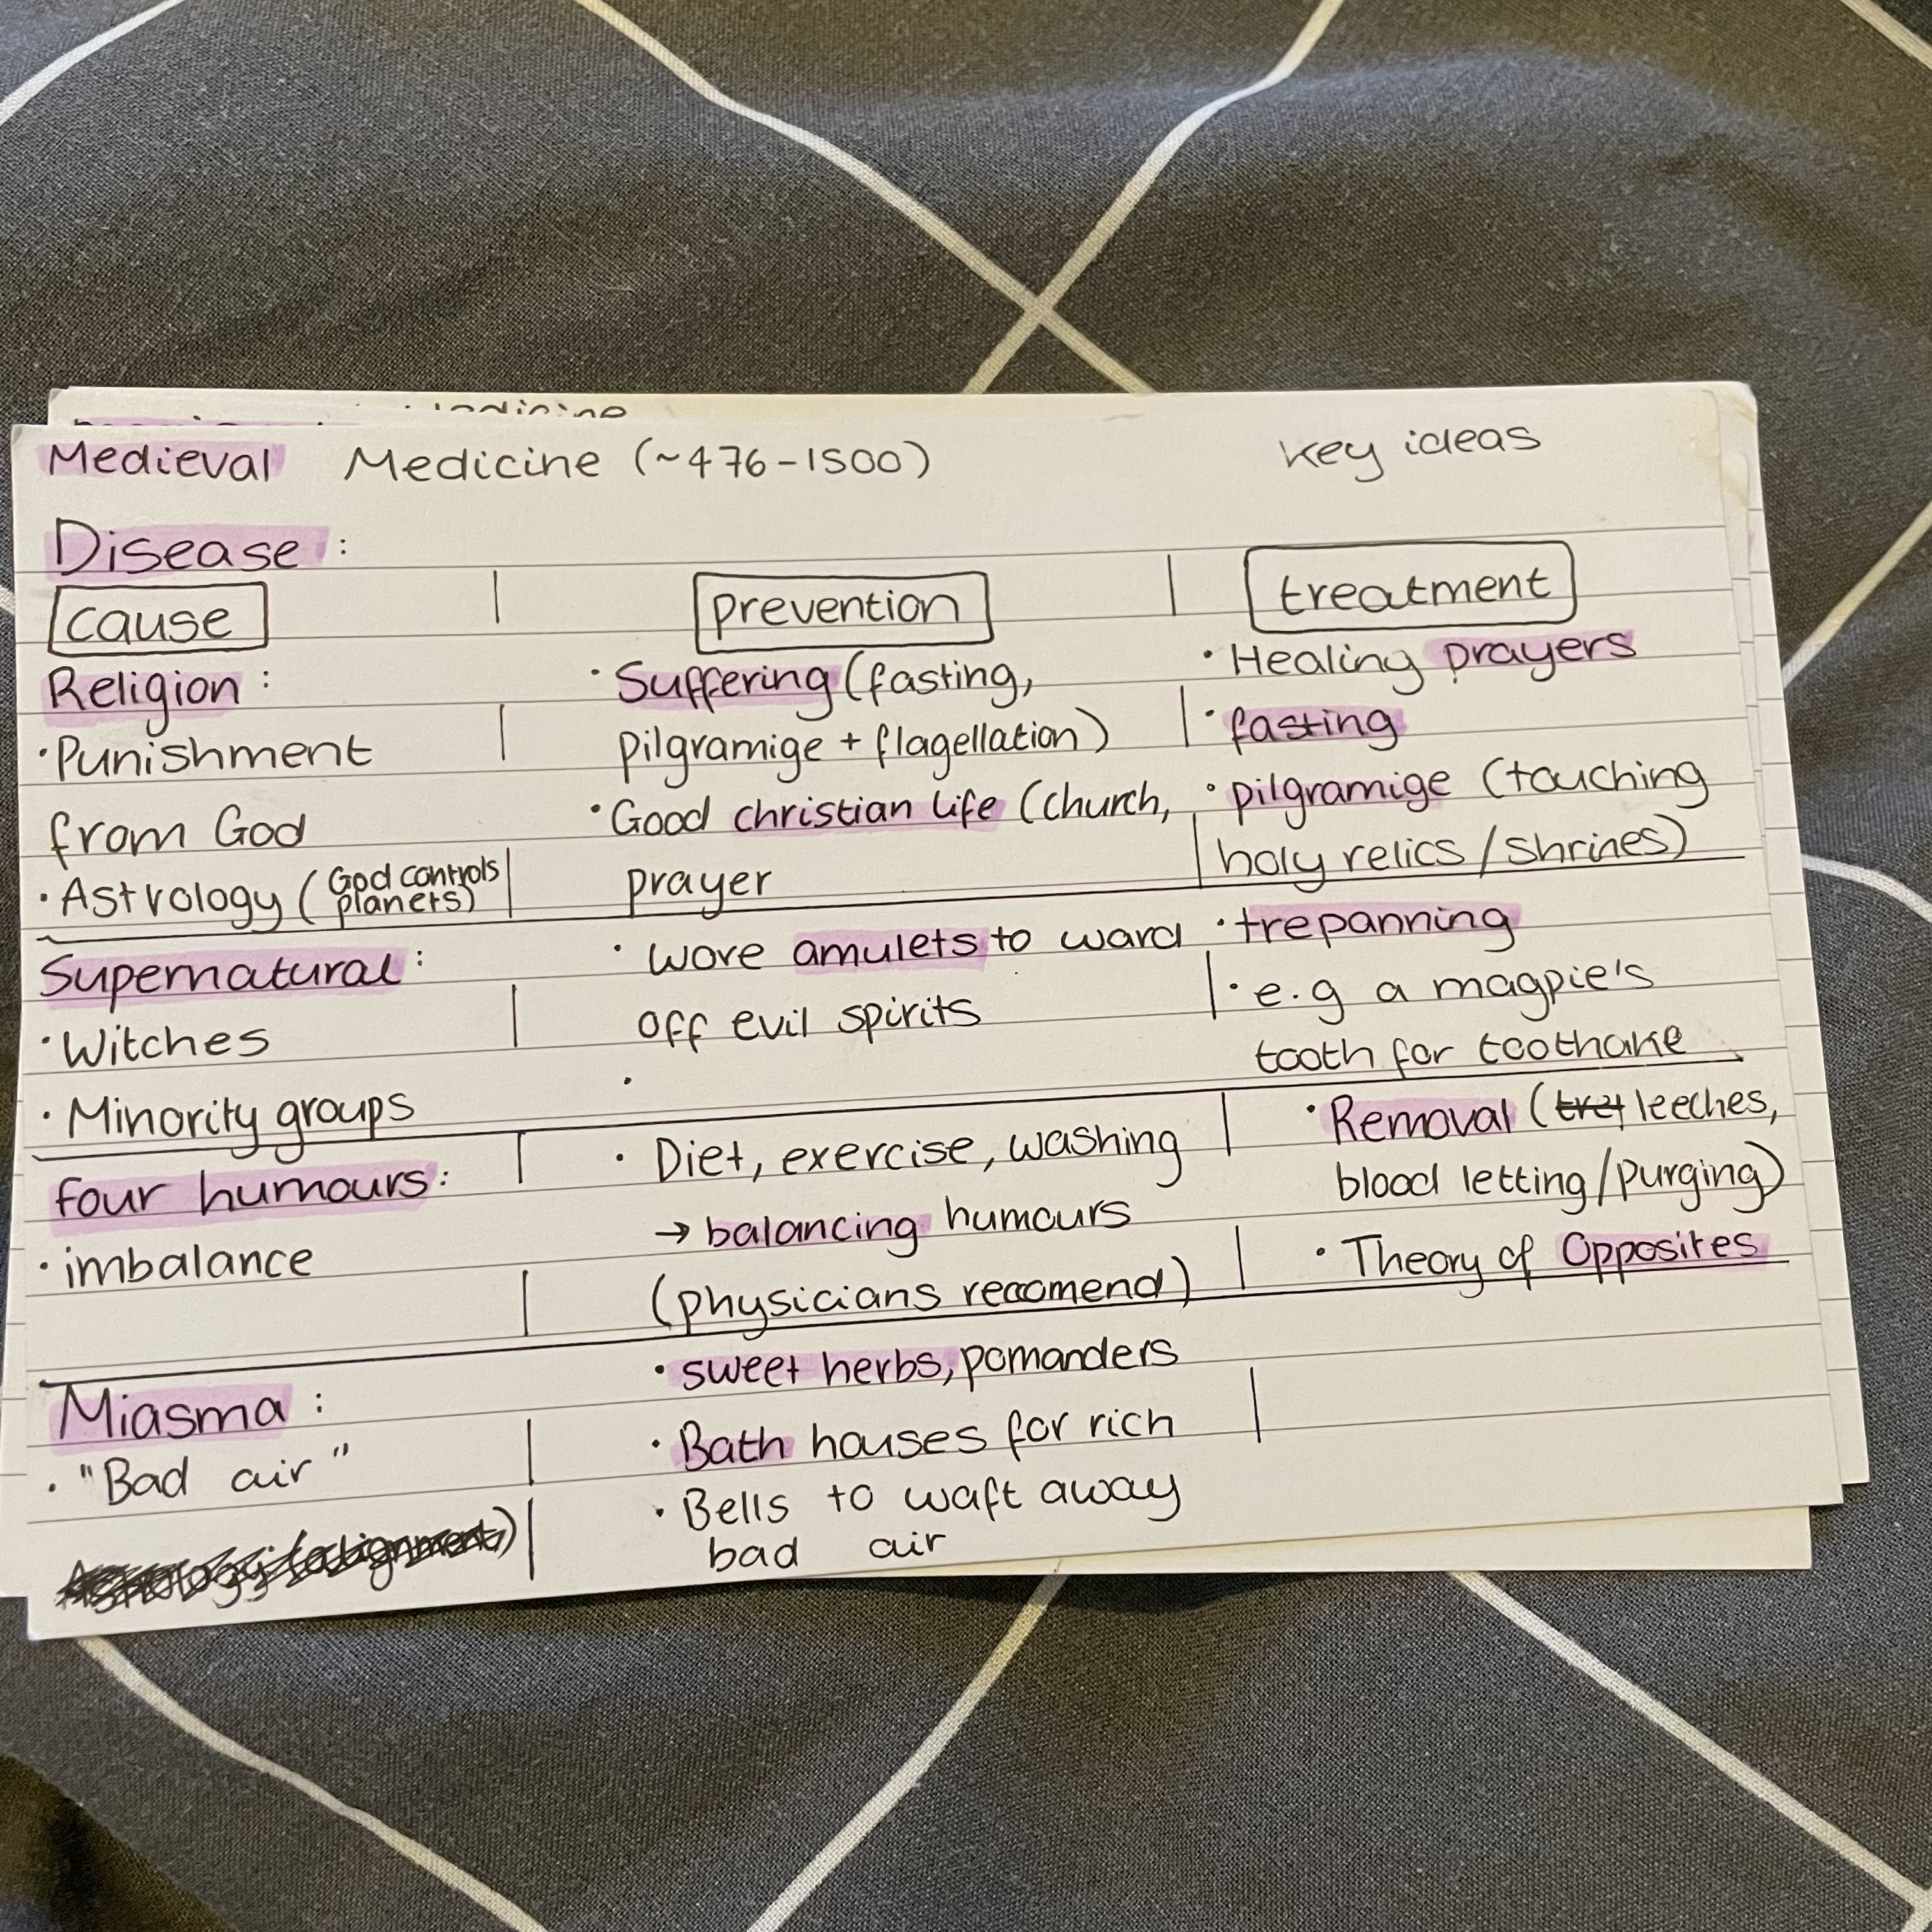 Medieval Medicine (~476-1500) key ideas
Disease :
cause | prevention | treatment
Religion :
· Punishment
from God
· Astrology (God controls planets)
· Suffering (fasting,
pilgramige + flagellation)
· Good christian life (church,
prayer
· Healing prayers
· fasting
· pilgramige (touching
holy relics / shrines)
Supernatural :
· Witches
· Minority groups
· wore amulets to ward
off evil spirits
·
· trepanning
· e.g a magpie's
tooth for toothake
four humours :
· imbalance
· Diet, exercise, washing
→ balancing humours
(physicians recomend)
· Removal (leeches,
blood letting/purging)
· Theory of Opposites
Miasma :
· "Bad air"
· sweet herbs, pomanders
· Bath houses for rich
· Bells to waft away
bad air